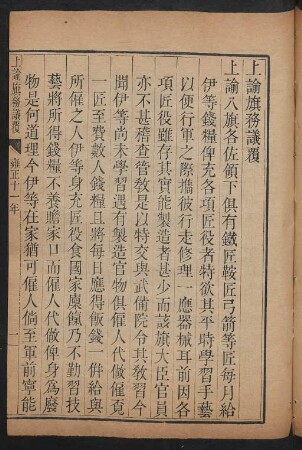 上諭旗務議覆
上諭八旗各佐領下俱有鐵匠鞍匠弓箭等匠每月給
伊等錢糧俾充各項匠役者特欲其平時學習手藝
以便行軍之際攜彼行走修理一應器械耳前因各
項匠役雖存其實能製造者甚少而該旗大臣官員
亦不甚稽查管教是以特交與武備院令其教習今
聞伊等尚未學習遇有製造官物俱僱人代做僱覓
一匠至費數人錢糧且將每日應得飯錢一併給與
所僱之人伊等身充匠役食國家廩餼乃不勤習技
藝將所得錢糧不養贍家口而僱人代做俾身為廢
物是何道理今伊等在家猶可僱人倘至軍前寧能
上諭旗務議覆
雍正十一年